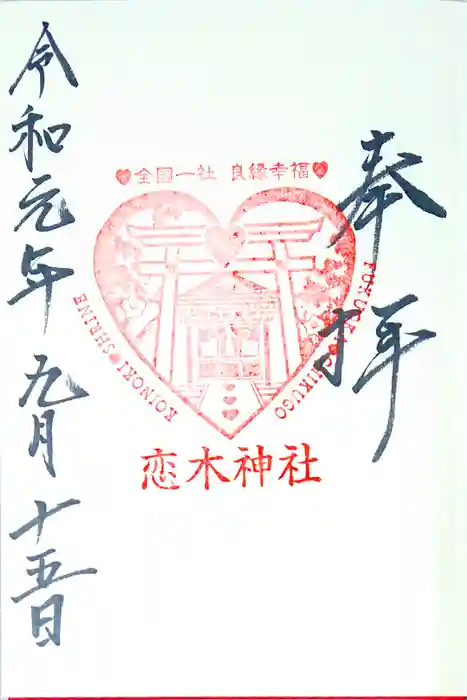 奉拝
♥全國一社 良縁幸福♥
KOINOKI♥SHRINE
FUKUOKA♥CHIKUGO
恋木神社
令和元年九月十五日